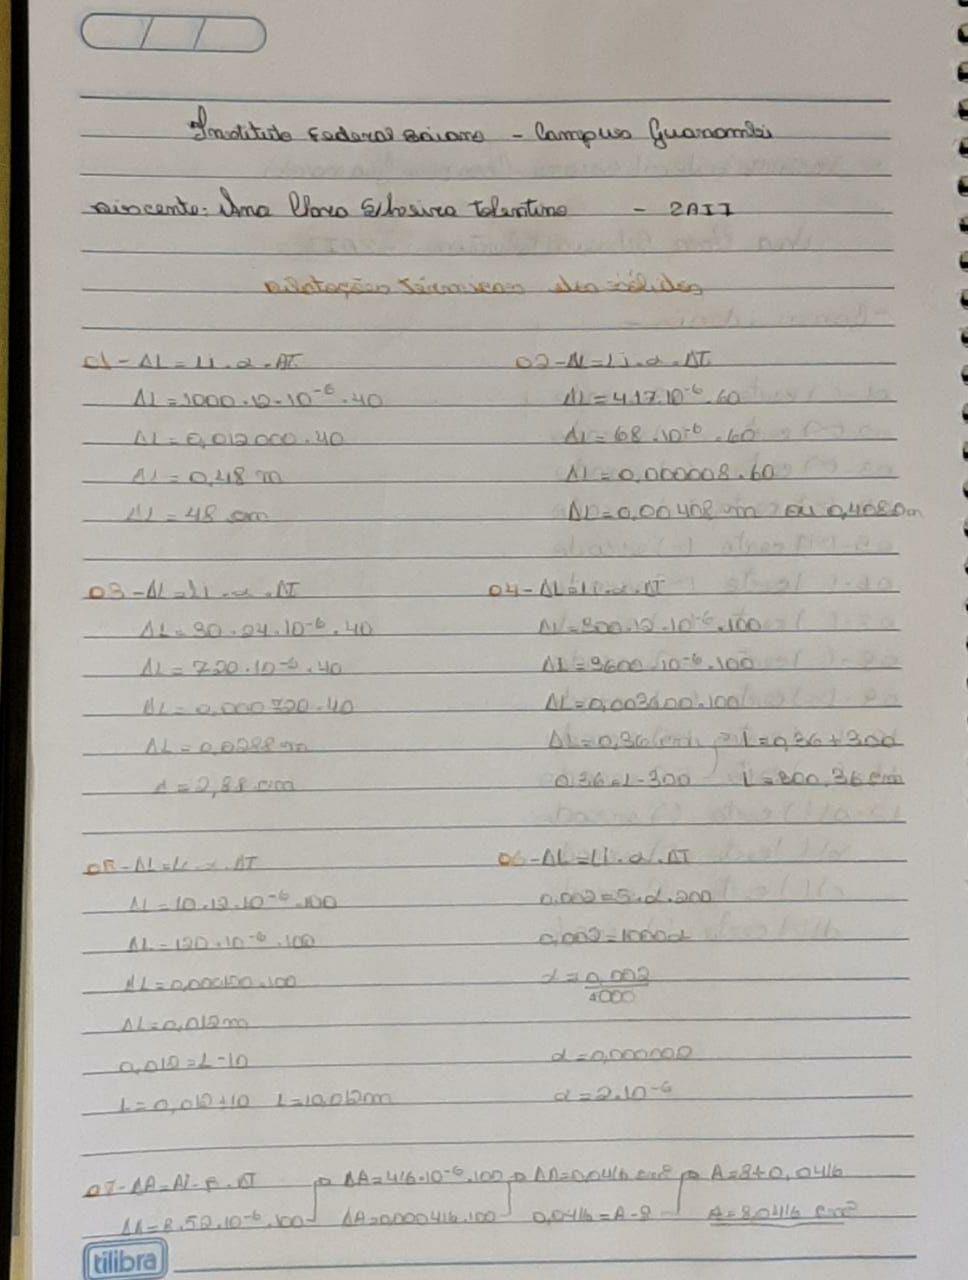 Instituto Federal Baiano - Campus Guanambi
Discente: Ana Clara Silveira Tolentino - 2AII
Dilatações Térmicas dos sólidos
01 - ΔL = Li . α . ΔT
ΔL = 1000 . 12 . 10⁻⁶ . 40
ΔL = 0,012000 . 40
ΔL = 0,48 m
ΔL = 48 cm
02 - ΔL = Li . α . ΔT
ΔL = 4.17.10⁻⁶ . 60
ΔL = 68 . 10⁻⁶ . 60
ΔL = 0,000008 . 60
ΔL = 0,00408 m ou 0,408 cm
03 - ΔL = Li . α . ΔT
ΔL = 30 . 24 . 10⁻⁶ . 40
ΔL = 720 . 10⁻⁶ . 40
ΔL = 0,000720 . 40
ΔL = 0,0288 m
= 2,88 cm
04 - ΔL = Li . α . ΔT
ΔL = 300 . 12 . 10⁻⁶ . 100
ΔL = 3600 . 10⁻⁶ . 100
ΔL = 0,003600 . 100
ΔL = 0,36 cm L = 0,36 + 300
0,36 = L - 300 L = 300,36 cm
05 - ΔL = Li . α . ΔT
ΔL = 10 . 12 . 10⁻⁶ . 100
ΔL = 120 . 10⁻⁶ . 100
ΔL = 0,000120 . 100
ΔL = 0,012 m
0,012 = L - 10
L = 0,012 + 10 L = 10,012 m
06 - ΔL = Li . α . ΔT
0,002 = 5 . α . 200
0,002 = 1000α
α = 0,002
1000
α = 0,000002
α = 2.10⁻⁶
07 - ΔA = Ai . β . ΔT ΔA = 416 . 10⁻⁶ . 100 ΔA = 0,0416 cm² A = 8 + 0,0416
ΔA = 8 . 52 . 10⁻⁶ . 100 ΔA = 0,000416 . 100 0,0416 = A - 8 A = 8,0416 cm²
tilibra